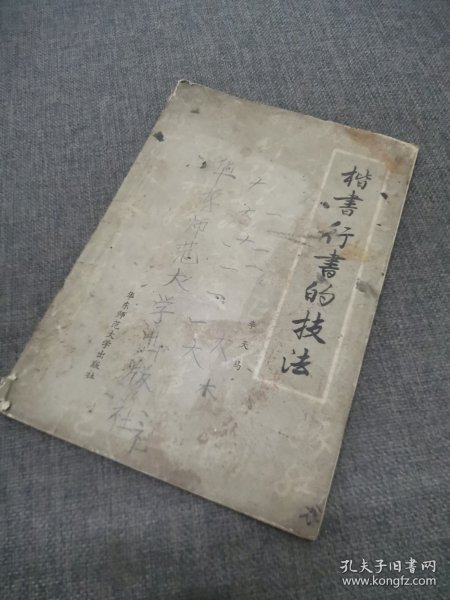 楷书行书的技法
李天马
华东师范大学出版社
华东师范大学出版社
孔夫子旧书网
www.kongfz.com